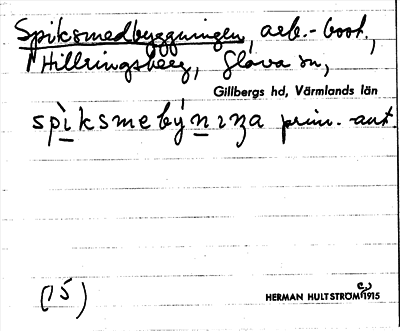 Spiksmedbyggningen, arb.-bost.,
Hillringsberg, Glava sn,
Gillbergs hd, Värmlands län
spìksmebýnıŋa prim. -aut.
(15)
HERMAN HULTSTRÖM 1915